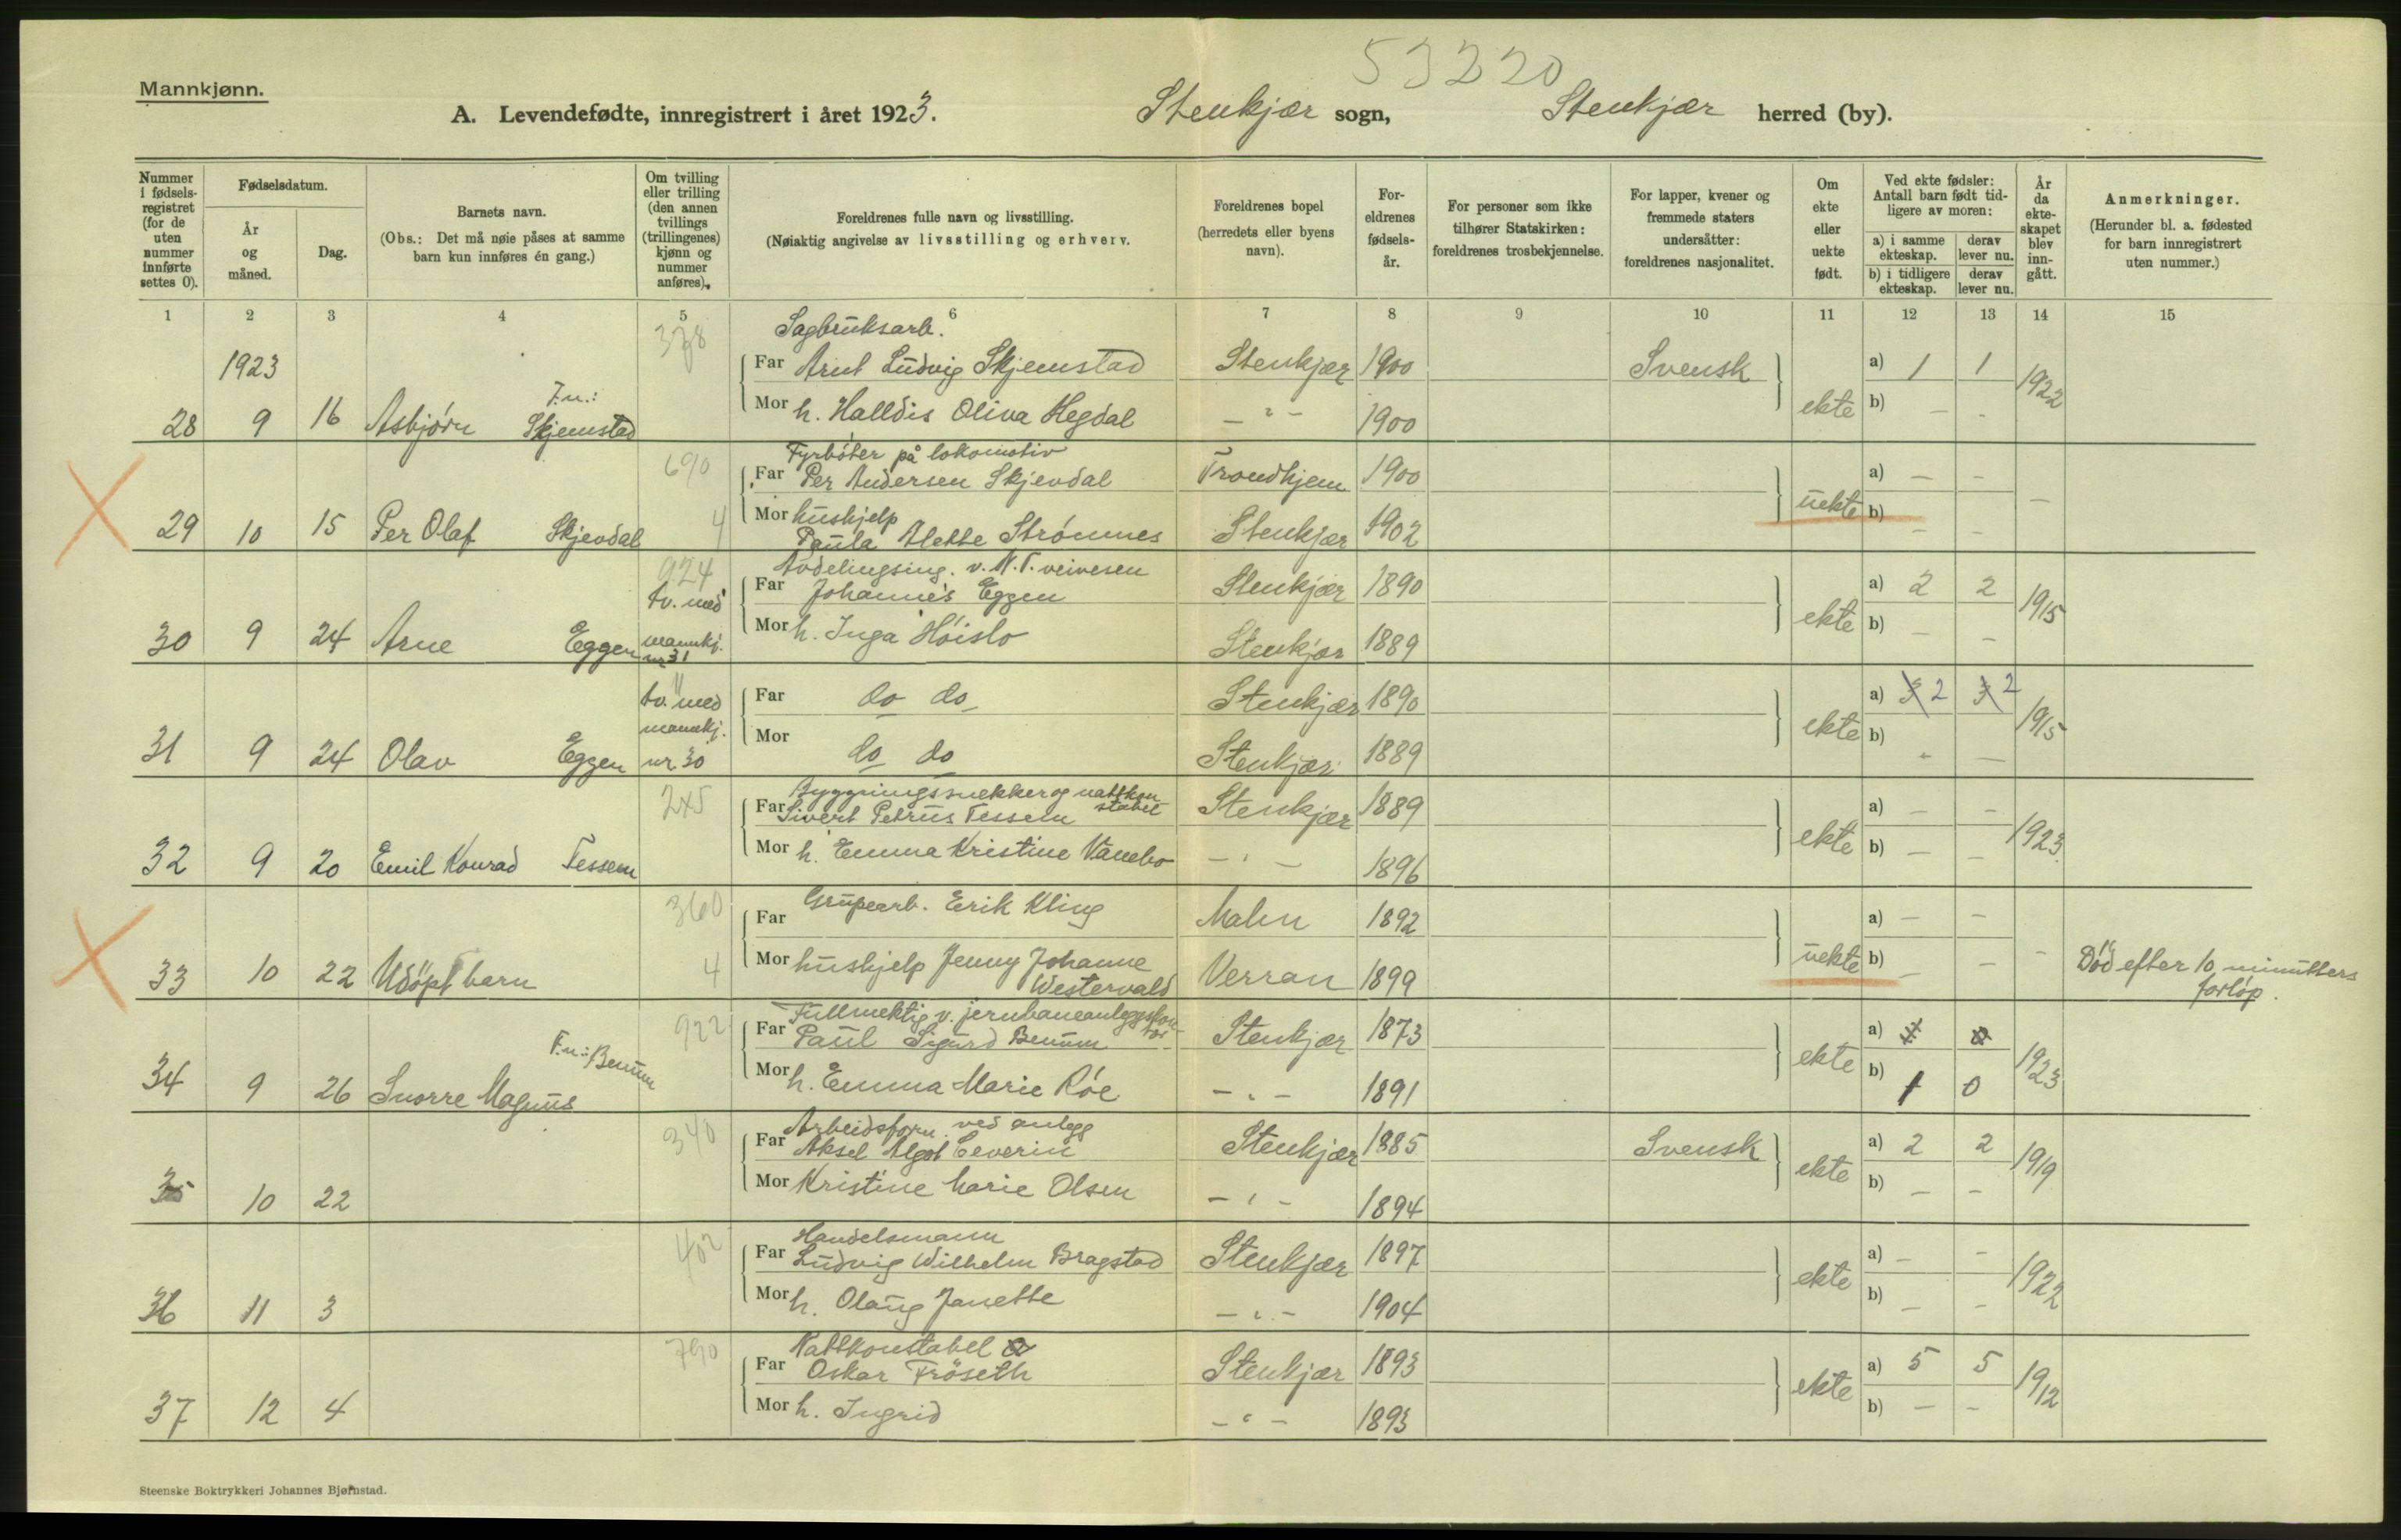 53220
Mannkjønn.
A. Levendefødte, innregistrert i året 1923. Stenkjær sogn, Stenkjær herred (by).
Nummer i fødsels-registret (for de uten nummer innførte settes 0).
Fødselsdatum.
År og måned.
Dag.
Barnets navn.
(Obs.: Det må nøie påses at samme barn kun innføres én gang.)
Om tvilling eller trilling (den annen tvillings (trillingenes) kjønn og nummer anføres).
Foreldrenes fulle navn og livsstilling.
(Nøiaktig angivelse av livsstilling og erhverv.
Foreldrenes bopel (herredets eller byens navn).
For-eldrenes fødsels-år.
For personer som ikke tilhører Statskirken: foreldrenes trosbekjennelse.
For lapper, kvener og fremmede staters undersåtter: foreldrenes nasjonalitet.
Om ekte eller uekte født.
Ved ekte fødsler: Antall barn født tid-ligere av moren:
a) i samme ekteskap. derav lever nu.
b) i tidligere ekteskap. derav lever nu.
År da ekte-skapet blev inn-gått.
Anmerkninger.
(Herunder bl. a. fødested for barn innregistrert uten nummer.)
1 2 3 4 5 6 7 8 9 10 11 12 13 14 15
378 Sagbruksarb.
1923 Far Arnt Ludvig Skjemstad Stenkjær 1900 Svensk a) 1 1 1922
28 9 16 Asbjørn F.n.: Skjemstad Mor h. Halldis Oliva Hegdal - " - 1900 ekte b) - -
690 Fyrbøter på lokomotiv
Far Per Andersen Skjevdal Trondhjem 1900 a) - - -
29 10 15 Per Olaf Skjevdal 4 Mor hushjelp Paula Alette Strømnes Stenkjær 1902 uekte b) - -
924 Avdelingsing. v. N.T. veivesen
tv. med Far Johannes Eggen Stenkjær 1890 a) 2 2 1915
30 9 24 Arne Eggen mannkj. nr 31 Mor h. Inga Høislo Stenkjær 1889 ekte b) - -
"
tv. med Far do do Stenkjær 1890 a) 3 2 3 2 1915
31 9 24 Olav Eggen mannkj. nr 30 Mor do do Stenkjær 1889 ekte b) - -
245 Bygningssnekker og nattkonstabel
Far Sivert Petrus Tessem Stenkjær 1889 a) - - 1923
32 9 20 Emil Konrad Tessem Mor h. Emma Kristine Vanebo - " - 1896 ekte b) - -
360 Far Grupearb. Erik Kling Malm 1892 a) - - -
33 10 22 Udöpt barn 4 Mor hushjelp Jenny Johanne Westervald Verran 1899 uekte b) - - Död efter 10 minutters forløp.
922 Fullmektig v. jernbaneanleggskontor
Far Paul Sigurd Benum Stenkjær 1873 a) 0 1923
34 9 26 Snorre Magnus F.n.: Benum Mor h. Emma Marie Røe - " - 1891 ekte b) 1 0
340 Arbeidsform. ved anlegg
Far Aksel Algot Severin Stenkjær 1885 Svensk a) 2 2 1919
35 10 22 Mor Kristine Marie Olsen - " - 1894 ekte b) - -
402 Handelsmann
Far Ludvig Wilhelm Bragstad Stenkjær 1897 a) - - 1922
36 11 3 Mor h. Olaug Janette - " - 1904 ekte b) - -
790 Nattkonstabel
Far Oskar Fröseth Stenkjær 1893 a) 5 5 1912
37 12 4 Mor h. Ingrid - " - 1893 ekte b) - -
Steenske Boktrykkeri Johannes Bjørnstad.